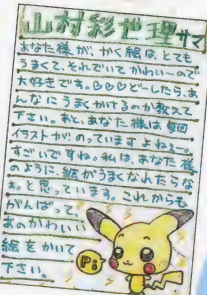 山村彩也理サマ
あなた様が、かく絵は、とても
うまくて、それでいてかわいーので
大好きです。♡♡♡どーしたら、あ
んなにうまくかけるのか教えて
下さい。あと、あなた様は毎回
イラストが、のっていますよねぇー。
すごいですね。私は、あなた様
のように、絵がうまくなれたらな
ぁ。と思っています。これからも
がんばって、
あのかわいい
絵をかいて
下さい。